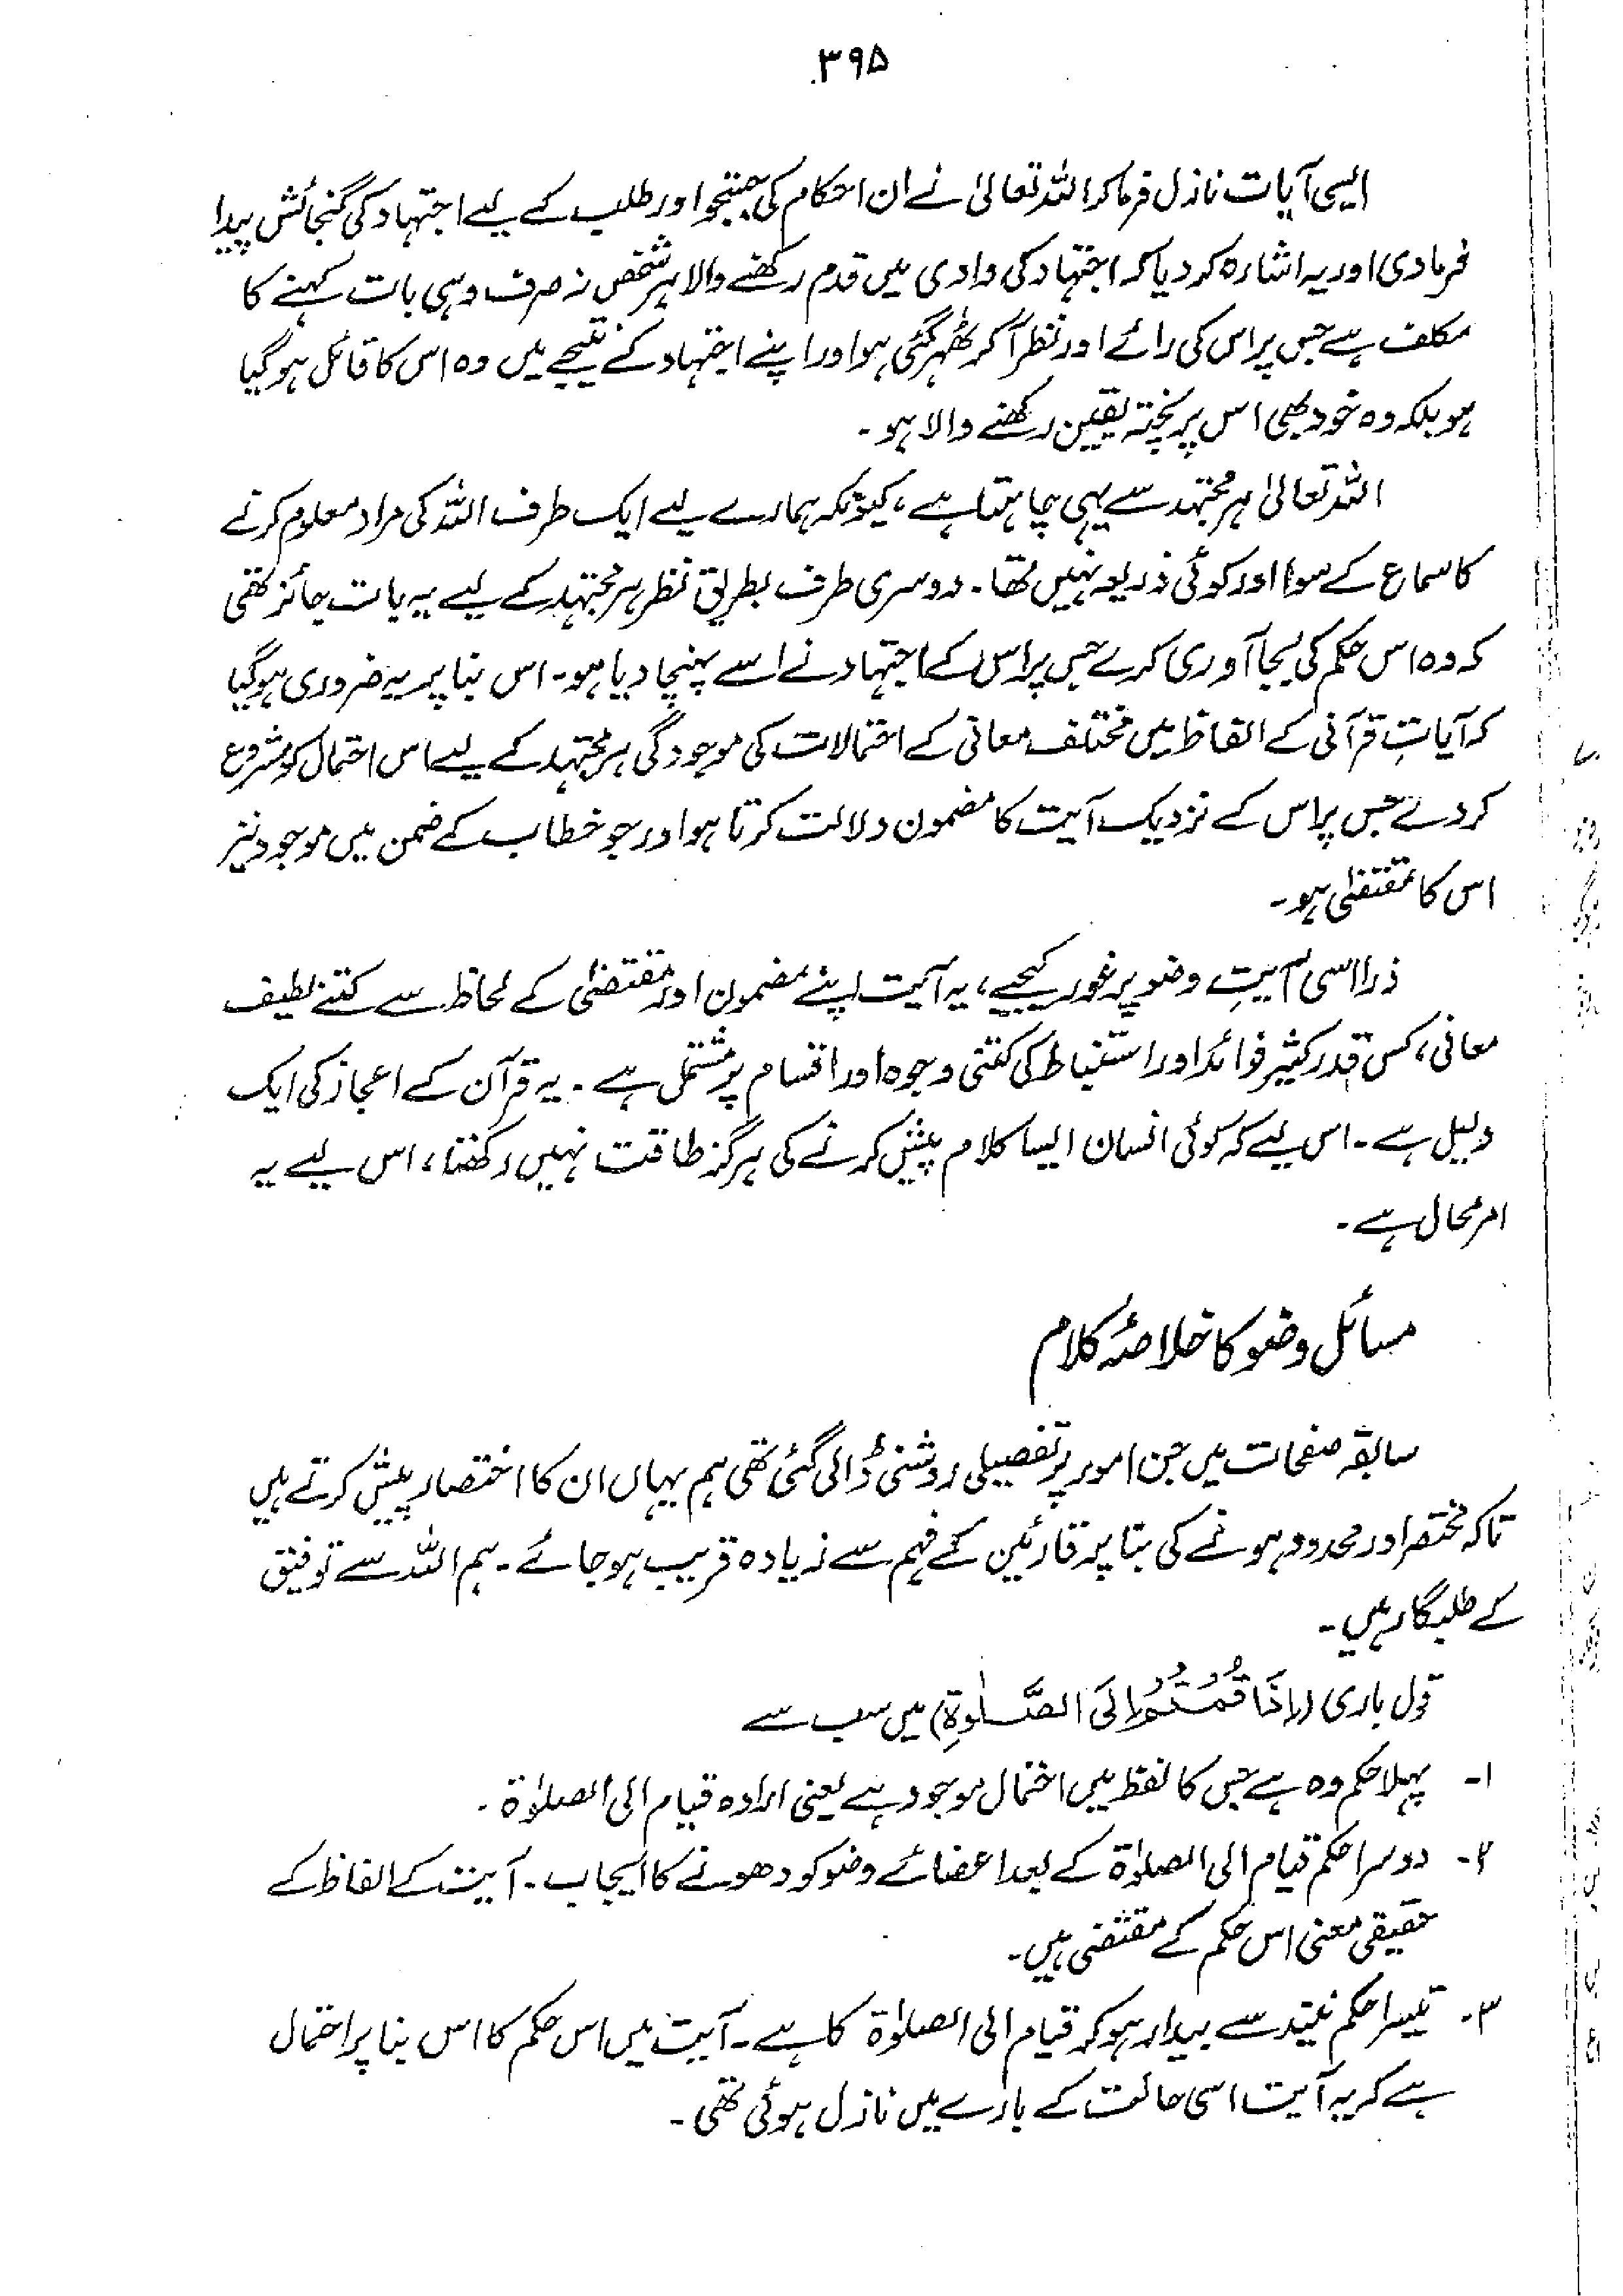 ۳۹۵
ایسی آیات نازل فرما کر اللہ تعالیٰ نے ان احکام کی جستجو اور طلب کے لیے اجتہاد کی گنجائش پیدا
فرما دی اور یہ اشارہ کر دیا کہ اجتہاد کی وادی میں قدم رکھنے والا ہر شخص نہ صرف وہی بات کہنے کا
مکلف ہے جس پر اس کی رائے اور نظر آ کر ٹھہر گئی ہو اور اپنے اجتہاد کے نتیجے میں وہ اس کا قائل ہو گیا
ہو بلکہ وہ خود بھی اس پر پختہ یقین رکھنے والا ہو۔
اللہ تعالیٰ ہر مجتہد سے یہی چاہتا ہے، کیونکہ ہمارے لیے ایک طرف اللہ کی مراد معلوم کرنے
کا سماع کے سوا اور کوئی ذریعہ نہیں تھا۔ دوسری طرف بطریق نظر ہر مجتہد کے لیے یہ بات جائز تھی
کہ وہ اس حکم کی بجا آوری کرے جس پر اس کے اجتہاد نے اسے پہنچا دیا ہو۔ اس بنا پر یہ ضروری ہو گیا
کہ آیاتِ قرآنی کے الفاظ میں مختلف معانی کے احتمالات کی موجودگی ہر مجتہد کے لیے اس احتمال کو مشروع
کر دے جس پر اس کے نزدیک آیت کا مضمون دلالت کرتا ہو اور جو خطاب کے ضمن میں موجود نیز
اس کا مقتضٰی ہو۔
ذرا اسی آیتِ وضو پر غور کیجیے، یہ آیت اپنے مضمون اور مقتضٰی کے لحاظ سے کتنے لطیف
معانی، کس قدر کثیر فوائد اور استنباط کی کتنی وجوہ اور اقسام پر مشتمل ہے۔ یہ قرآن کے اعجاز کی ایک
دلیل ہے۔ اس لیے کہ کوئی انسان ایسا کلام پیش کرنے کی ہرگز طاقت نہیں رکھتا، اس لیے یہ
امر محال ہے۔
مسائل وضو کا خلاصۂ کلام
سابقہ صفحات میں جن امور پر تفصیلی روشنی ڈالی گئی تھی ہم یہاں ان کا اختصار پیش کرتے ہیں
تاکہ مختصر اور محدود ہونے کی بنا پر قارئین کے فہم سے زیادہ قریب ہو جائے۔ ہم اللہ سے توفیق
کے طلبگار ہیں۔
قول باری (اِذَا قُمْتُمْ اِلَی الصَّلٰوةِ) میں سب سے
۱۔ پہلا حکم وہ ہے جس کا لفظ میں احتمال موجود ہے یعنی ارادہ قیام الی الصلوٰۃ۔
۲۔ دوسرا حکم قیام الی الصلوٰۃ کے بعد اعضائے وضو کو دھونے کا ایجاب۔ آیت کے الفاظ کے
حقیقی معنی اس حکم کے مقتضی ہیں۔
۳۔ تیسرا حکم نیند سے بیدار ہو کر قیام الی الصلوٰۃ کا ہے۔ آیت میں اس حکم کا اس بنا پر احتمال
ہے کہ یہ آیت اسی حالت کے بارے میں نازل ہوئی تھی۔